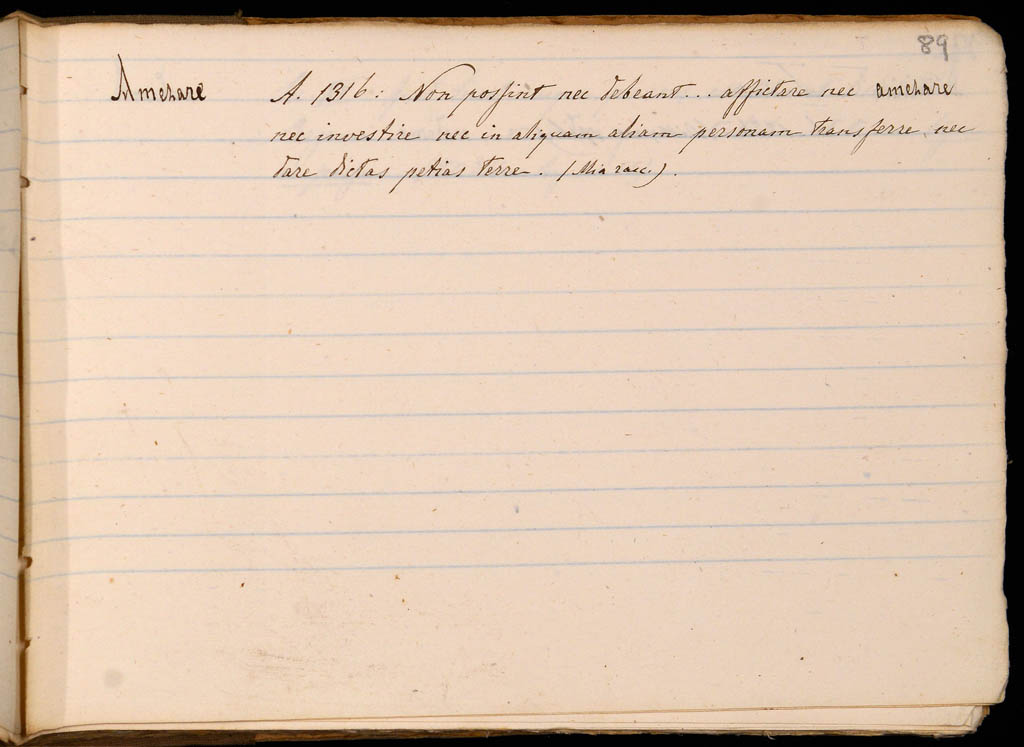 89
Amezare A. 1316: Non possint nec debeant... affictare nec amezare
nec investire nec in aliquam aliam personam transferre nec
dare dictas petias terre. (Mia racc.).